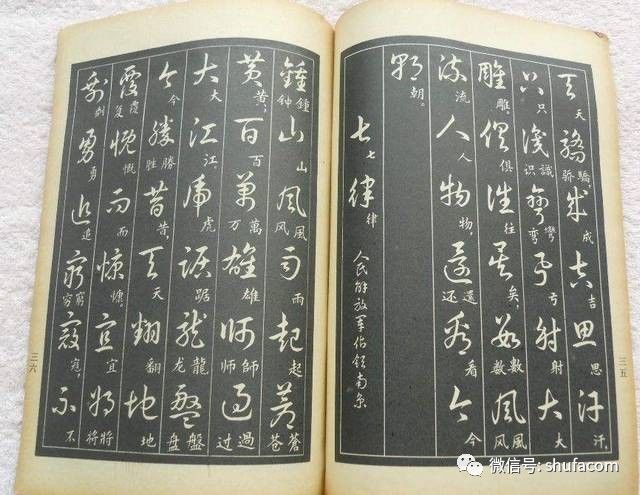 天驕成吉思汗
天 骄驕, 成 吉 思 汗,
只識彎弓射大
只 识識 弯彎 弓 射 大
雕俱往矣數風
雕, 俱 往 矣, 数數 风風
流人物還看今
流 人 物, 还還 看 今
朝
朝。
七律
七 律
人民解放军佔领南京
三五
鍾山風雨起蒼
钟鍾 山 风風 雨 起 苍蒼
黃百萬雄師過
黄, 百 万萬 雄 师師 过過
大江虎踞龍盤
大 江, 虎 踞 龙龍 盘盤
今勝昔天翻地
今 胜勝 昔, 天 翻 地
覆慨而慷宜將
复覆 慨 而 慷, 宜 将將
剩勇追窮寇不
剩 勇 追 穷窮 寇, 不
三六
微信号: shufacom